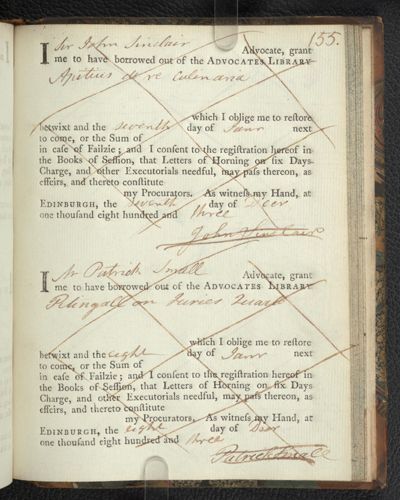 155.
I Sir John Sinclair Advocate, grant
me to have borrowed out of the ADVOCATES LIBRARY
Apitius de re culinaria
which I oblige me to reſtore
betwixt and the seventh day of Janr next
to come, or the Sum of
in caſe of Failzie; and I conſent to the regiſtration hereof in
the Books of Seſſion, that Letters of Horning on ſix Days
Charge, and other Executorials needful, may paſs thereon, as
effeirs, and thereto conſtitute
my Procurators. As witneſs my Hand, at
EDINBURGH, the seventh day of Decr
one thouſand eight hundred and three
John Sinclair
I Mr Patrick Small Advocate, grant
me to have borrowed out of the ADVOCATES LIBRARY
on Juries
which I oblige me to reſtore
betwixt and the eight day of Janr next
to come, or the Sum of
in caſe of Failzie; and I conſent to the regiſtration hereof in
the Books of Seſſion, that Letters of Horning on ſix Days
Charge, and other Executorials needful, may paſs thereon, as
effeirs, and thereto conſtitute
my Procurators. As witneſs my Hand, at
EDINBURGH, the eight day of Decr
one thouſand eight hundred and three
Patrick Small